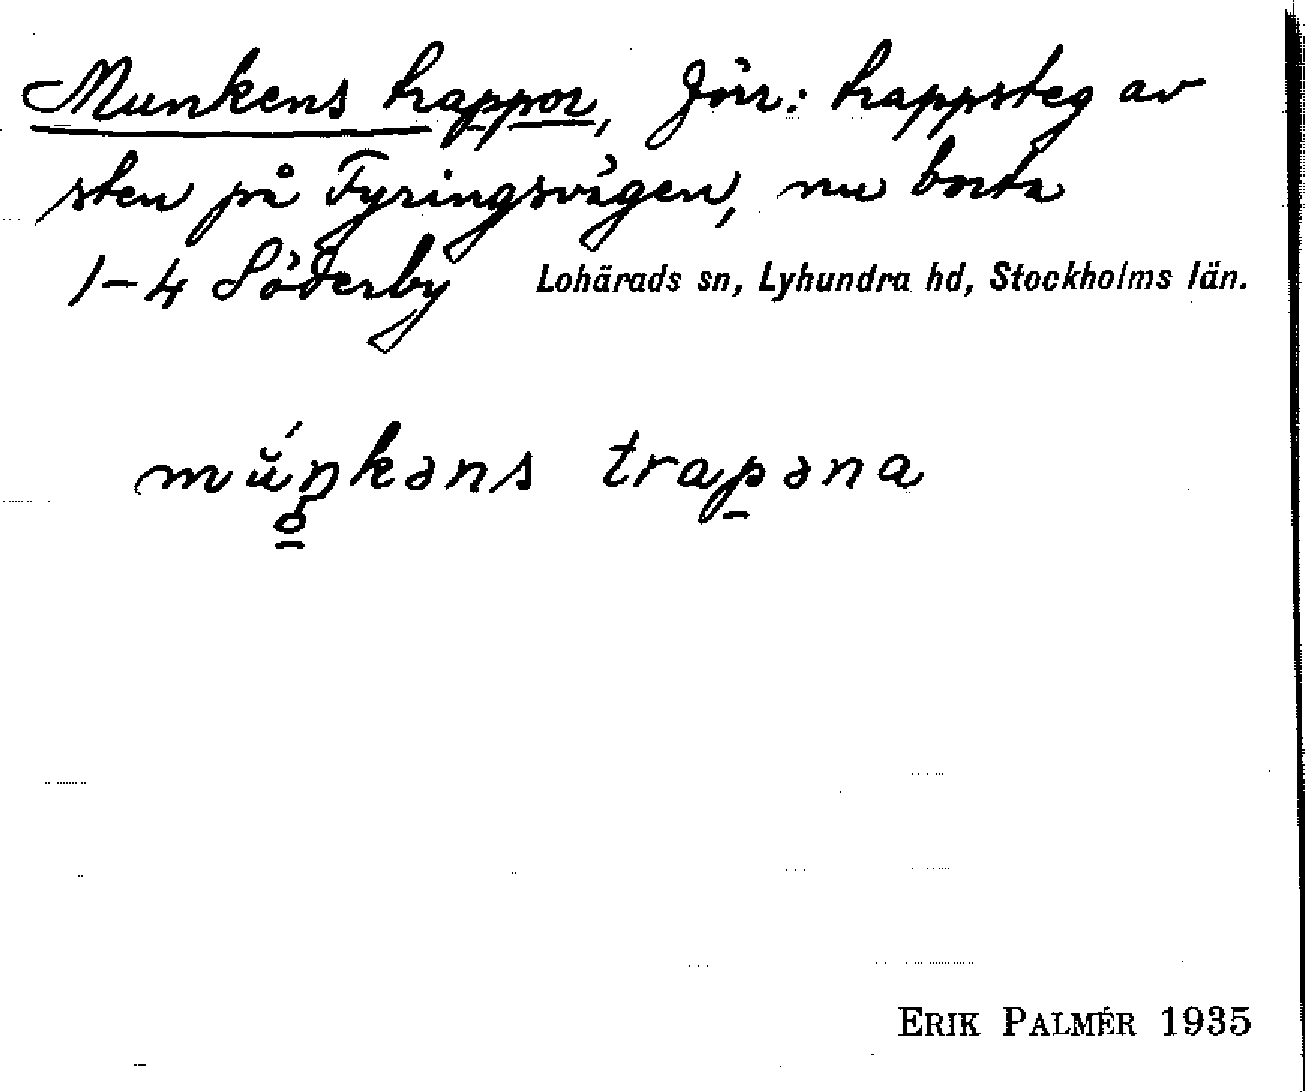 Munkens trappor, förr: trappsteg av
sten på Fyringsvägen, nu borta
1-4 Söderby Lohärads sn, Lyhundra hd, Stockholms län.
mu̇́ŋkəns trap̱əna
ERIK PALMÉR 1935